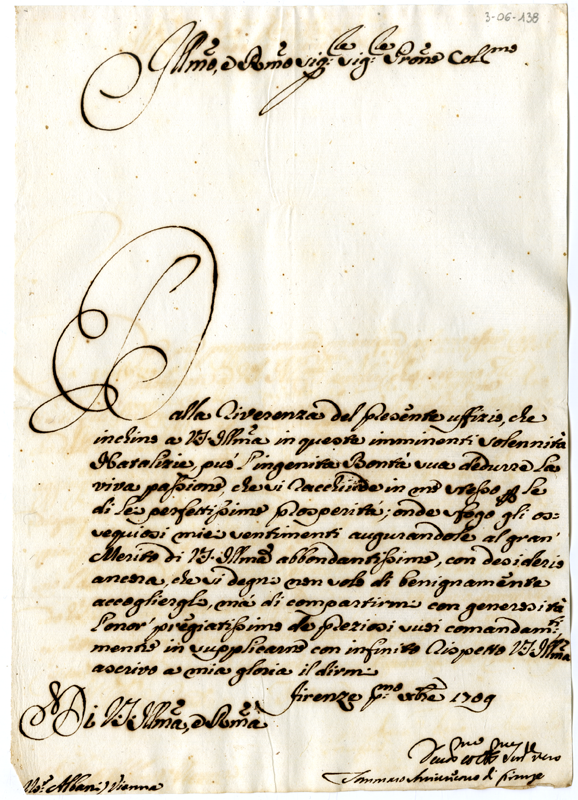 3-06-138
Illmo, e Rmo Sig:re Sig:re Prone Coll:mo
Dalla riverenza del presente uffizio, che
inchino a VS Illma in queste imminenti Solennità
Natalizie, può l'ingenita Bontà sua dedurre la
viva passione, che si racchiude in me verso le
di lei perfettissime prosperità; onde sfogo gli os-
sequiosi miei sentimenti augurandole al gran
Merito di VS Illma abbondantissime, con desiderio
ancora, che si degni non solo di benignamente
accoglierle, mà di compartirmi con generosità
l'onor pregiatissimo de preziosi suoi comandam:ti
mentre in supplicarne con infinito rispetto VS Illma
ascrivo a mia gloria il dirmi
Firenze p:mo Xbre 1709
Di VS Illma, e Rma
Tommaso
Albani Vienna